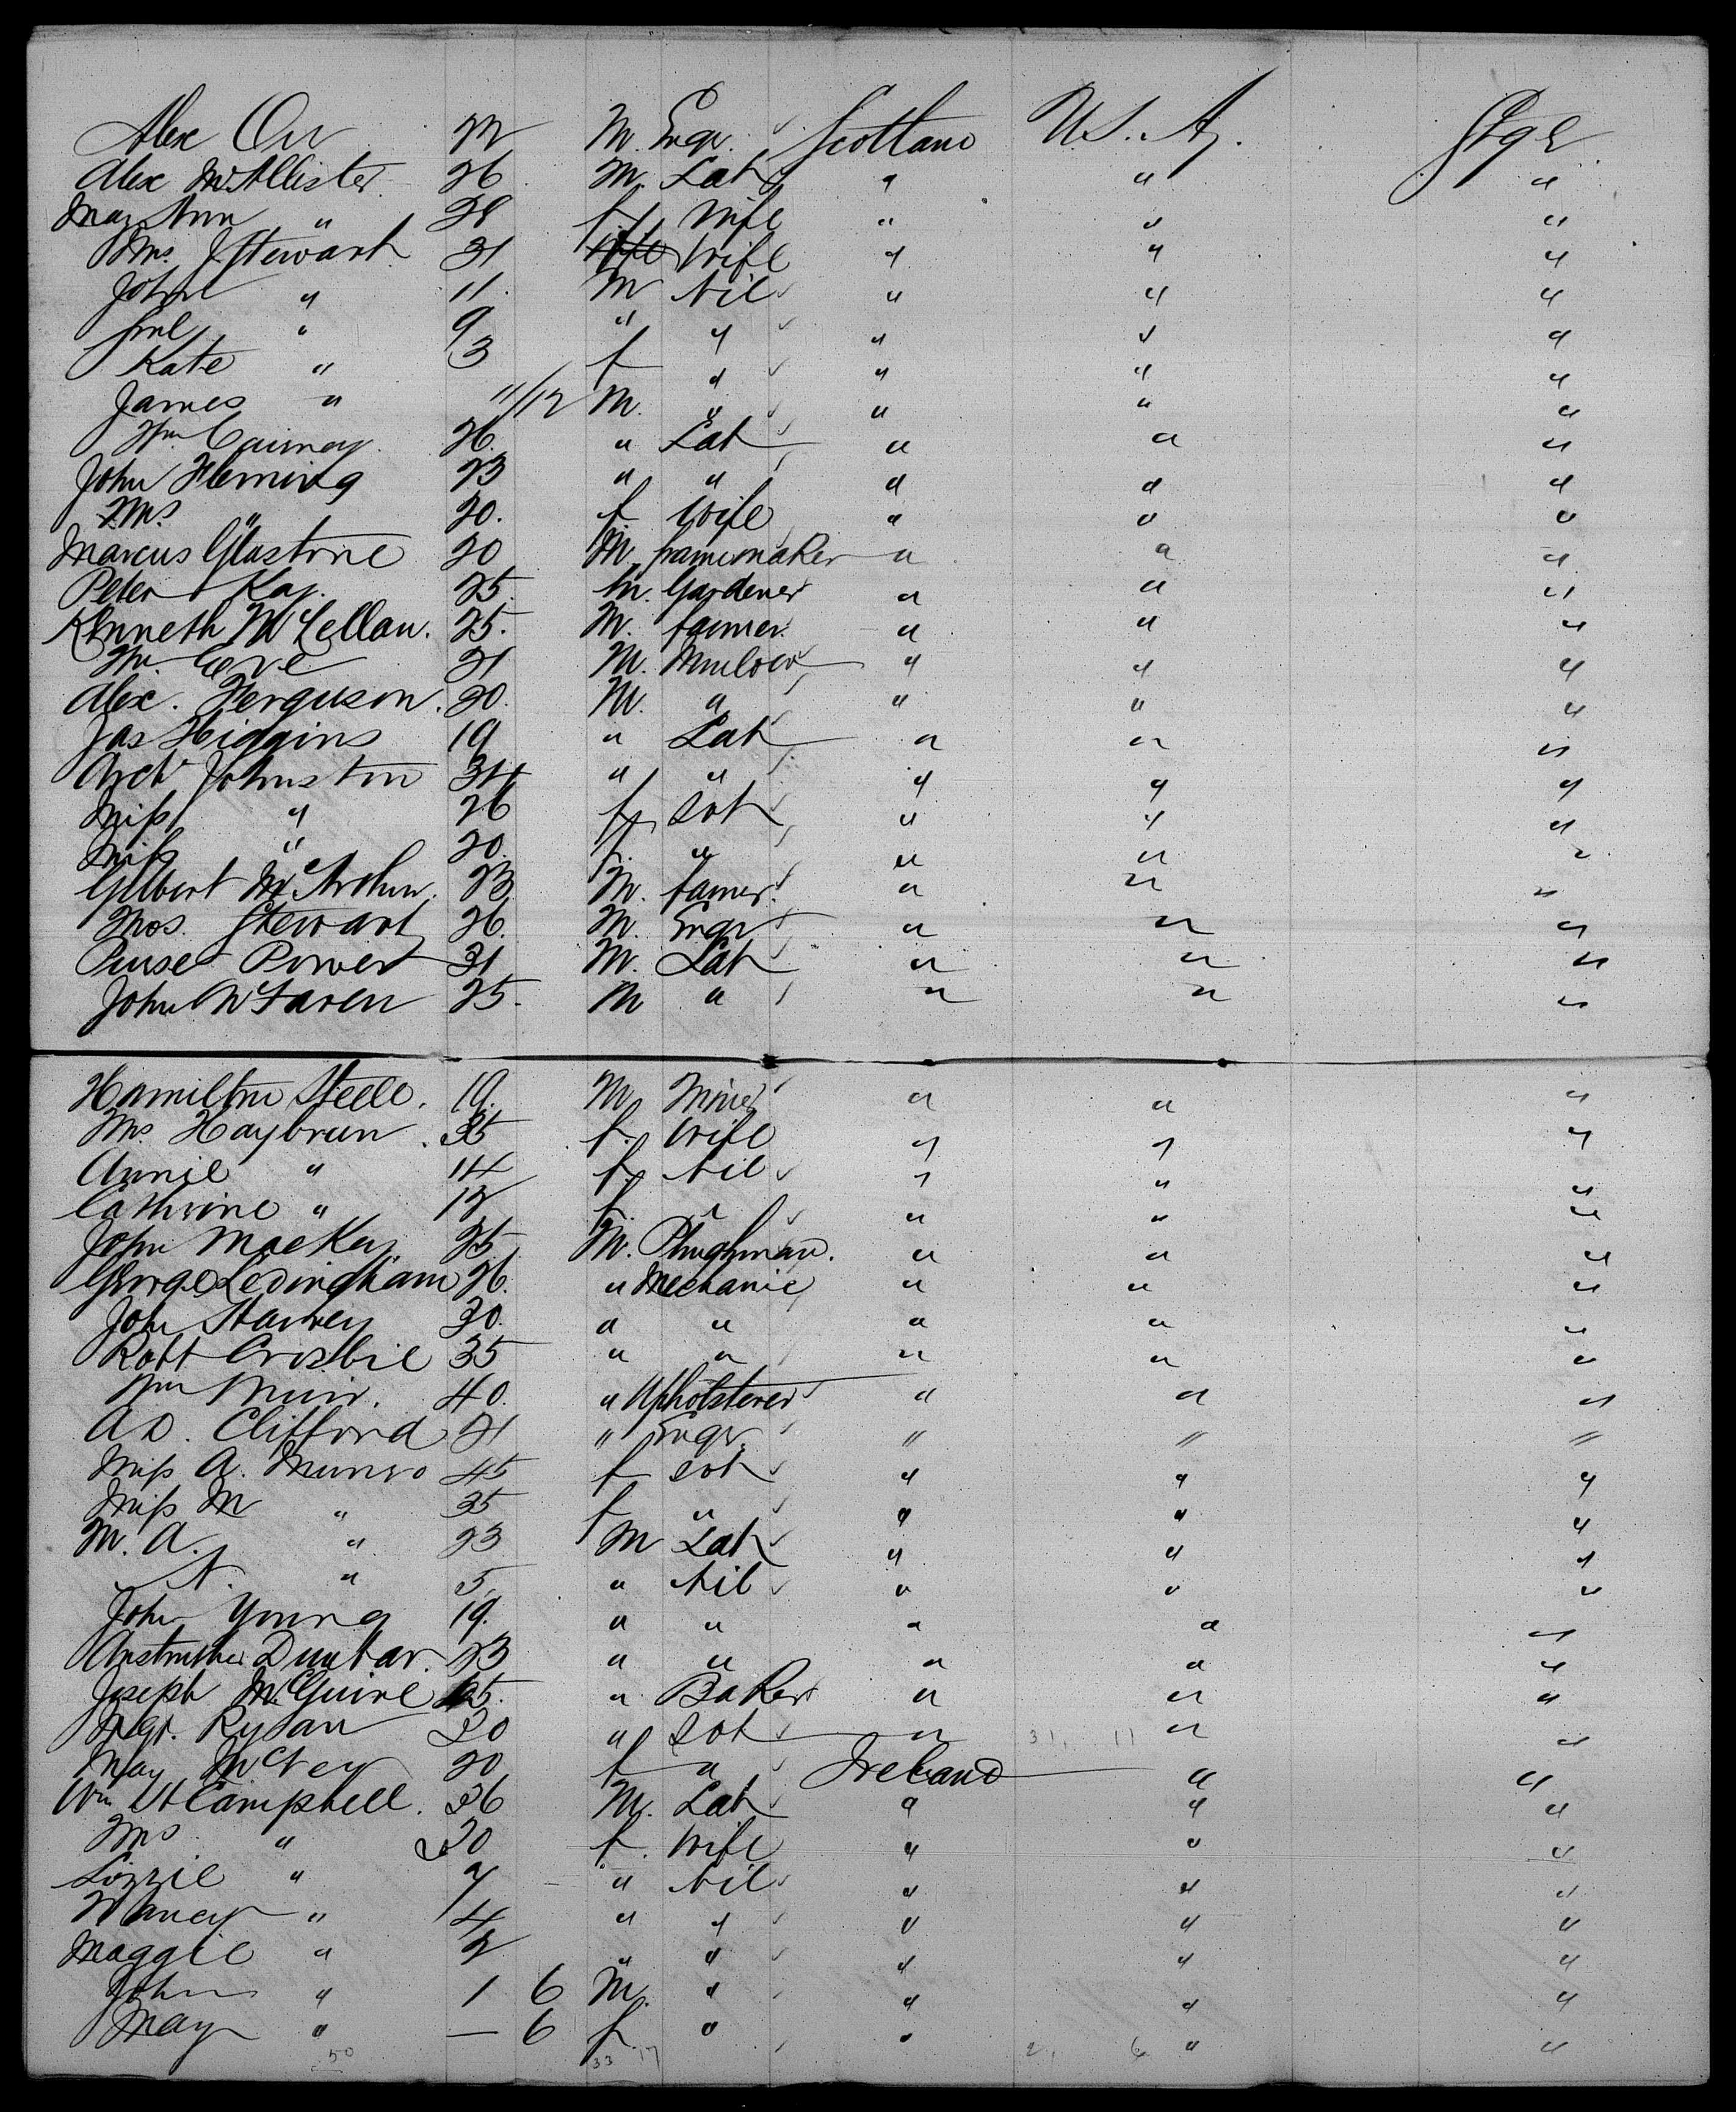 Alex Orr 22 M. Engr. Scotland U.S.A. Stge
Alex McAllister 26 M. Lab " " "
May Ann " 28 f. Wife " " "
Mrs. J Stewart 31 Wife Wife " " "
John " 11. M Nil " " "
" 9 " " " " "
Kate " 3 f " " " "
James " 11/12 M. " " " "
Wm Cairney 26. " Lab " " "
John Fleming 23 " " " " "
Mrs. " 20. f Wife " " "
Marcus Glastone 20 M. framemaker " " "
Peter Kay. 25. M. Gardener " " "
Kenneth McLellan. 25. M. farmer. " " "
Wm 21 M. " " "
Alex. Ferguson. 20. M. " " " "
Jas Higgins 19 " Lab " " "
Archd Johnston 34 " " " " "
Miss " 26 f. Sot " " "
Miss " 20. f. " " " "
Gilbert McArthur. 23 M. farmer. " " "
Thos. Stewart 26. M. Engr " " "
Power 31 M. Lab " " "
John McLaren 25. M " " " "
Hamilton Steele. 19. M. Miner " " "
Mrs. Hayburn. 35 f. Wife " " "
Annie " 14 f. Nil " " "
Cathrine " 12 f. " " " "
John MacKay. 25. M. Plughman. " " "
George Ledingham 26. " Mechanic " " "
John Harvey 30. " " " " "
Robt Crosbie 35 " " " " "
Wm Muir. 40. " Upholsterer " " "
A D. Clifford 21 " Engr. " " "
Miss A. Munro 45 f Sot " " "
Miss M " 35 f " " " "
M. A. " 23 M Lab " " "
N. " 5. " Nil " " "
John Young 19. " " " " "
Anstruther Dunbar. 23 " " " " "
Joseph McGuire 25. " Baker " " "
Rysan 20 " Sot " 31, 11 " "
May McVey 20 f " Ireland " "
Wm H Campbell. 36 M. Lab " " "
Mrs " 30 f. Wife " " "
Lizzie " 7 " Nil " " "
" 4 " " " " "
Maggie " 2 " " " " "
John " 1 6 M. " " " "
May " — 6 f. " " " "
50 33 17 2, 6